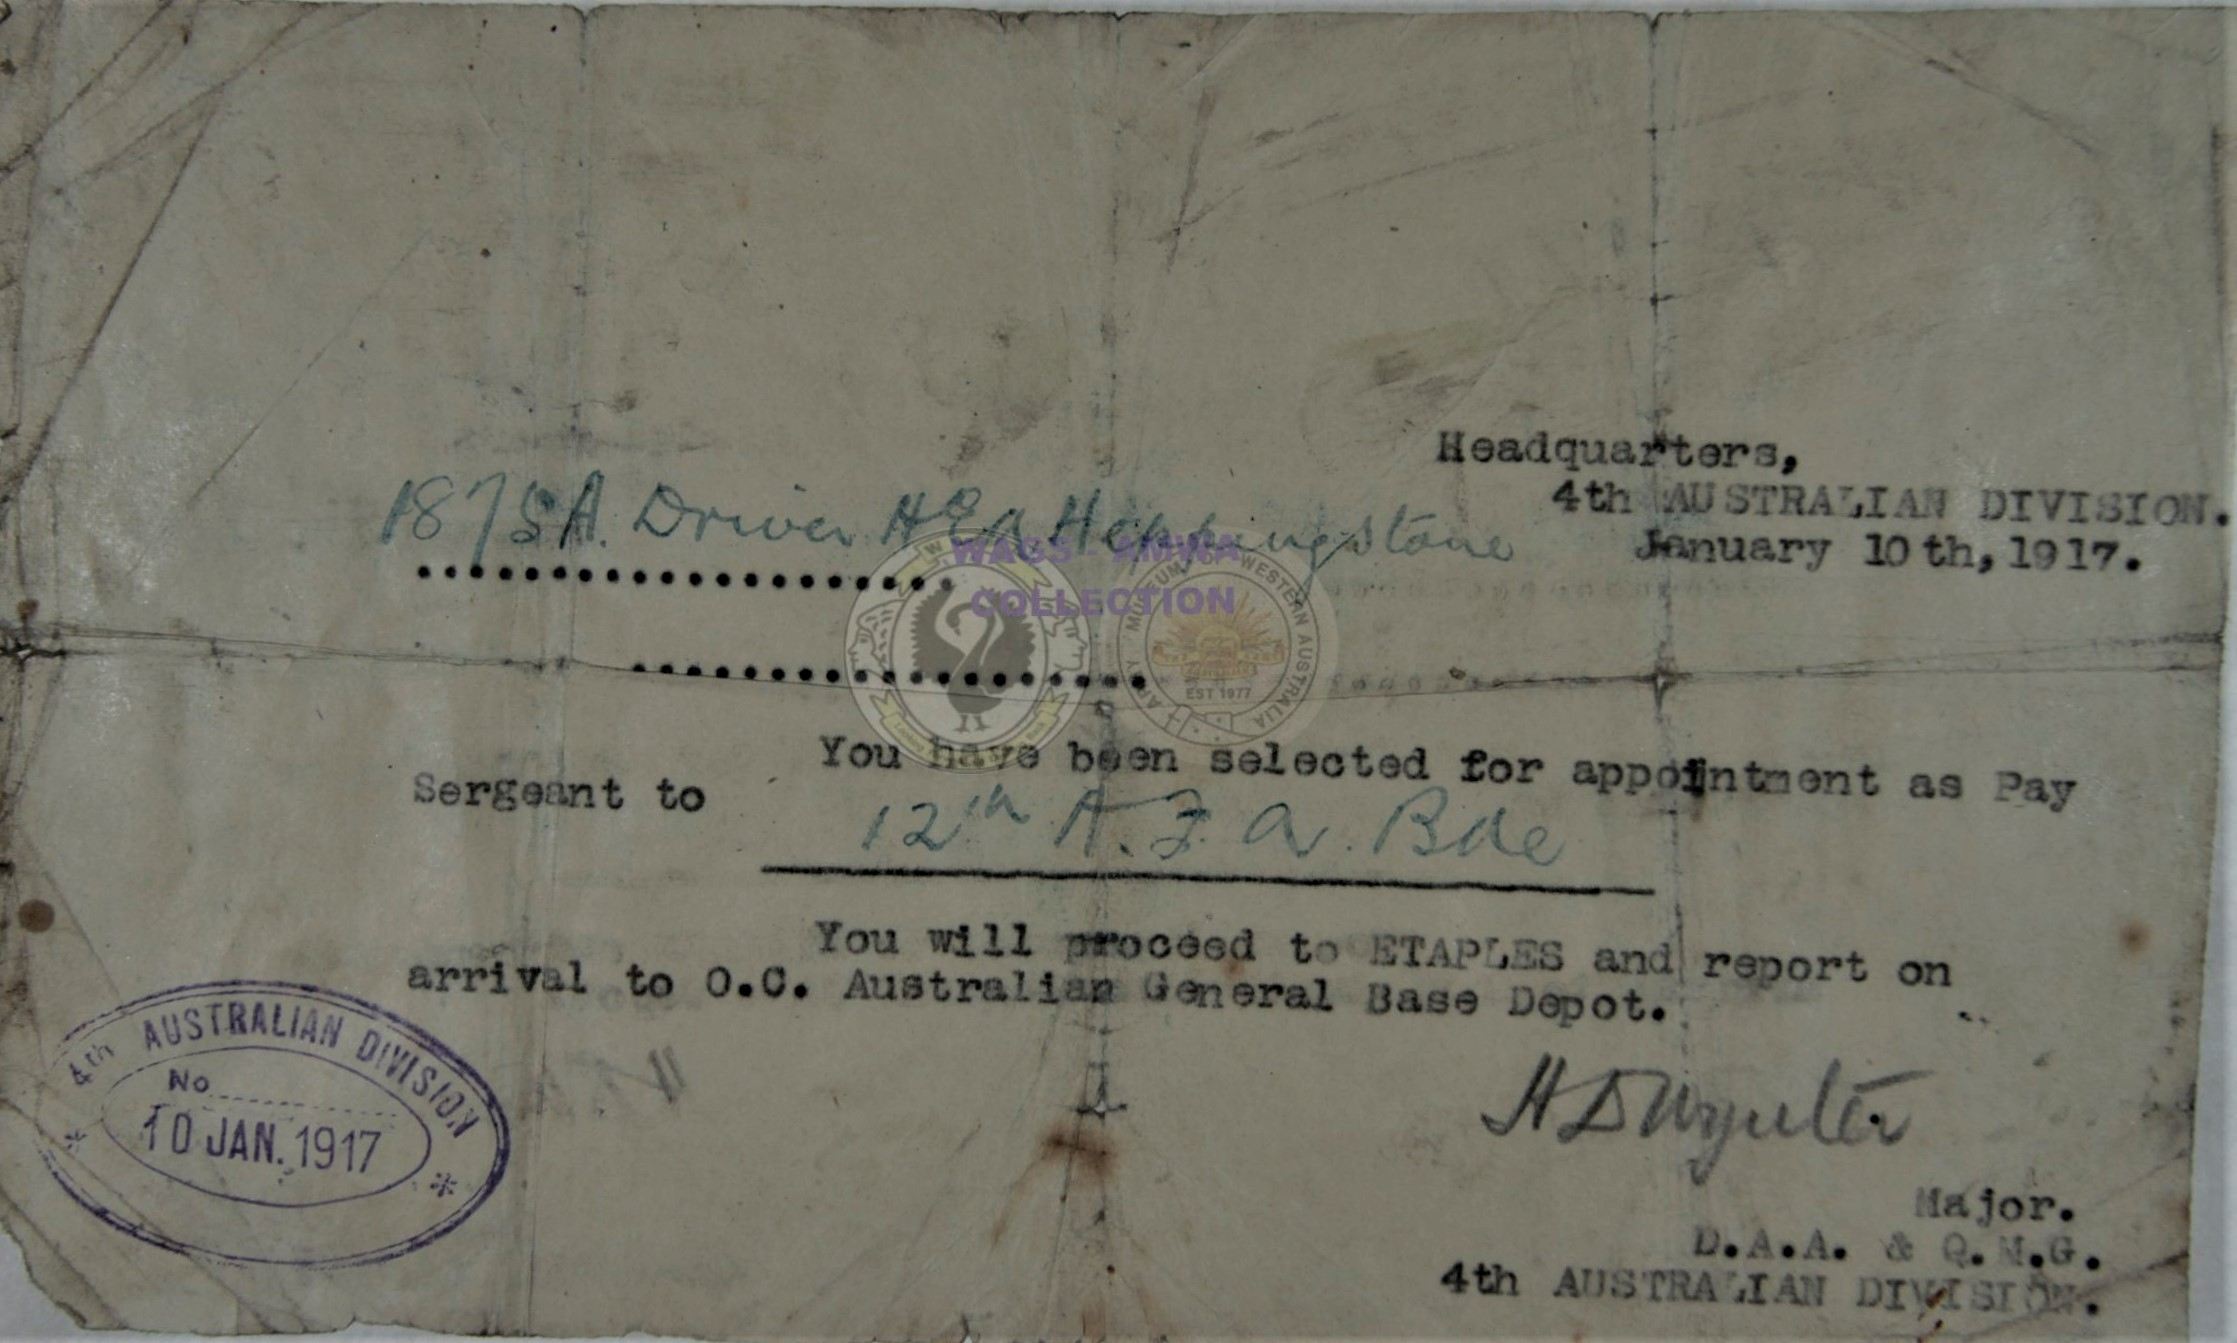 Headquarters,
4th AUSTRALIAN DIVISION.
January 10th, 1917.
1875A. Driver H E A Heppingstone
....................
...................
You have been selected for appointment as Pay
Sergeant to
12th A. F. A. Bde
You will proceed to ETAPLES and report on
arrival to O.C. Australian General Base Depot.
H D Wynter
Major.
D.A.A. & Q.M.G.
4th AUSTRALIAN DIVISION.
4th AUSTRALIAN DIVISION
No
10 JAN. 1917
WAGS - AMWA
COLLECTION
ARMY MUSEUM OF WESTERN AUSTRALIA
EST 1977